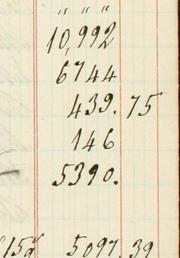 " " "
10,992
6744
439. 75
146
5390.
5097. 39